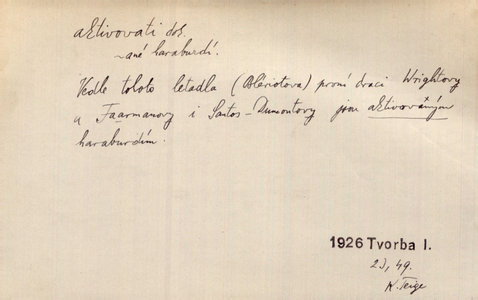 aktivovati dok.
~ané haraburdí.
Vedle tohoto letadla (Blériotova) první draci Wrightovy
a Faarmanovy i Santos-Dumontovy jsou aktivovaným
haraburdím.
1926 Tvorba I.
23, 49.
K. Teige